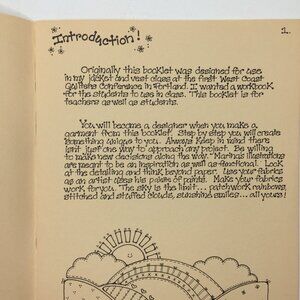 Introduction!
1.
Originally this booklet was designed for use
in my jacket and vest class at the first West Coast
Quilters Conference in Portland. I wanted a workbook
for the students to use in class. This booklet is for
teachers as well as students.
You will become a designer when you make a
garment from this booklet! Step by step you will create
something unique to you. Always keep in mind there
isnt just one way to approach any project. Be willing
to make new decisions along the way. Marlynns illustrations
are meant to be an inspiration as well as functional. Look
at the detailing and think beyond paper. Use your fabrics
as an artist uses his palate of paints. Make your fabrics
work for you. The sky is the limit... patchwork rainbows,
stitched and stuffed clouds, sunshine smiles... all yours!